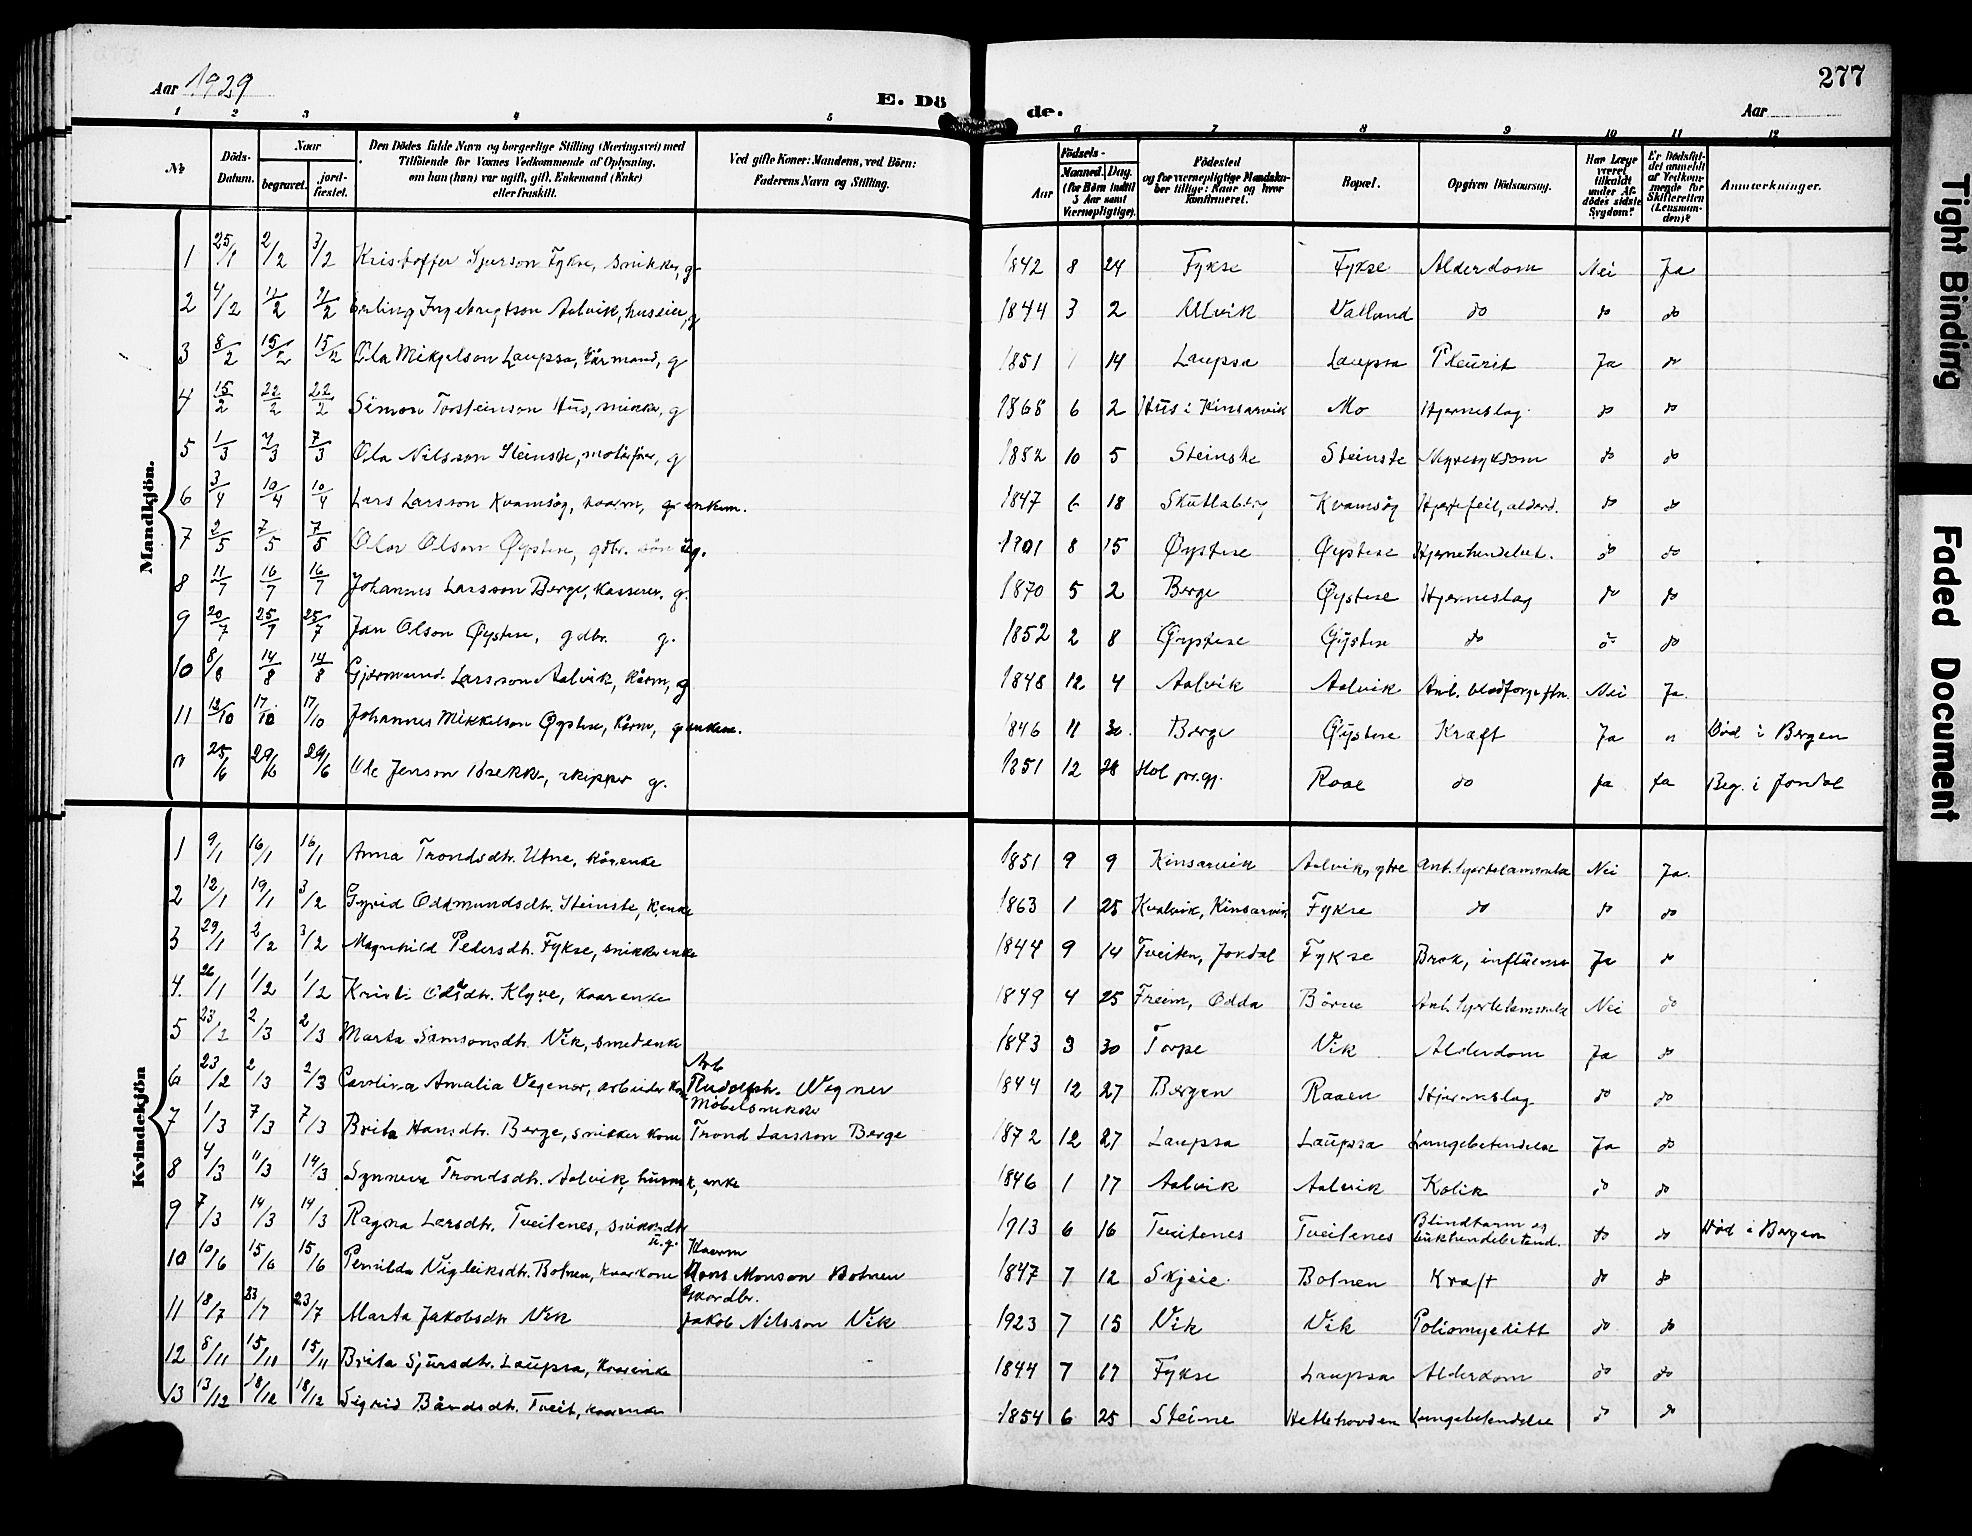 Aar 1929
E. Dö
de.
Aar
277
1 2 3 4 5 6 7 8 9 10 11 12
No.
Döds-Datum.
Naar
begravet.
jord-fæstet.
Den Dödes fulde Navn og borgerlige Stilling (Næringsvei) med
Tilföiende for Voxnes Vedkommende af Oplysning,
om han (hun) var ugift, gift, Enkemand (Enke)
eller fraskilt.
Ved gifte Koner: Mandens, ved Börn:
Faderens Navn og Stilling.
Födsels-
Aar
Maaned. Dag.
(for Börn indtil
5 Aar samt
Værnepligtige).
Födested
og for værnepligtige Mandska-
ber tillige: Naar og hvor
konfirmeret.
Bopæl.
Opgiven Dödsaarsag.
Har Læge
været
tilkaldt
under Af-
dödes sidste
Sygdom?
Er Dödsfal-
det anmeldt
af Vedkom-
mende for
Skifteretten
(Lensman-
den)?
Anmærkninger.
Mandkjön.
1 25/1 2/2 3/2 Kristoffer Sjurson Fykse, snikker, g 1842 8 24 Fykse Fykse Alderdom Nei Ja
2 4/2 11/2 11/2 Erling Ingebrigtson Aalvik, huseier, g 1844 3 2 Ulvik Vatlund do do do
3 8/2 15/2 15/2 Ola Mikjelson Laupsa, kårmand, g 1851 1 14 Laupsa Laupsa Pleurit Ja do
4 15/2 22/2 22/2 Simon Torsteinson Hus, snikker, g 1868 6 2 Hus i Kinsarvik Mo Hjerneslag do do
5 1/3 7/3 7/3 Ola Nilsson Steinste, motorfører, g 1882 10 5 Steinste Steinste Nyresykdom do do
6 3/4 10/4 10/4 Lars Larsson Kvamsøy, kaarm, enkem. 1847 6 18 Skutlaberg Kvamsøy Hjertefeil, alderd. do do
7 2/5 7/5 7/5 Olav Olson Øystese, gdbr. søn ug. 1901 8 15 Øystese Øystese Hjernebetendels. do do
8 11/7 16/7 16/7 Johannes Larsson Berge, kasserer, g. 1870 5 2 Berge Øystese Hjerneslag do do
9 20/7 25/7 25/7 Jon Olson Øystese, gdbr. g. 1852 2 8 Øystese Øystese do do do
10 8/8 14/8 14/8 Gjermund Larsson Aalvik, kårm, g 1848 12 4 Aalvik Aalvik Ant. blodforgiftn. Nei Ja
11 12/10 17/10 17/10 Johannes Mikkelson Øystese, kårm, enkem. 1846 11 30 Berge Øystese Kræft Ja " Død i Bergen
" 25/6 29/6 29/6 Ole Jenson skipper g. 1851 12 28 Hol pr.gj. Raae do Ja Ja Beg. i Jondal
Kvindekjön
1 9/1 16/1 16/1 Anna Trondsdtr. Utne, kårenke 1851 9 9 Kinsarvik Aalvik, ytre Ant. hjertelammelse Nei Ja.
2 12/1 19/1 3/2 Gyrid Oddmundsdtr. Steinste, k.enke 1863 1 25 Kvalvik, Kinsarvik Fykse do do do
3 29/1 2/2 3/2 Magnhild Pedersdtr. Fykse, snikkerenke 1844 9 14 Tveiten, Jondal Fykse Brok, influensa Ja do
4. 26/1 1/2 1/2 Kristi Olsdtr. Klyve, kaarenke 1849 4 25 Freim, Odda Børve Ant. hjertelammelse Nei do
5 23/2 2/3 2/3 Marta Samsonsdtr. Vik, smedenke 1843 3 30 Torpe Vik Alderdom Ja do
6 23/2 2/3 2/3 Carolina Amalia Wegener, arbeider kone Arb Rudolph. Wegner 1844 12 27 Bergen Raaen Hjerneslag do do
7 1/3 7/3 7/3 Brita Hansdtr. Berge, snikker kone Møbelsnikker Trond Larsson Berge 1872 12 27 Laupsa Laupsa Lungebetendelse Ja do
8 4/3 11/3 14/3 Synneva Trondsdtr. Aalvik, husm k, enke 1846 1 17 Aalvik Aalvik Kolik do do
9 7/3 14/3 14/3 Ragna Larsdtr. Tveitenes, snikkerdtr u.g. 1913 6 16 Tveitenes Tveitenes Blindtarm og bukhindebetend. do do Død i Bergen
10 10/6 15/6 15/6 Pernilda Vigleiksdtr. Botnen, kaarkone Kaarm Hans Monson Botnen 1847 7 12 Skjeie Botnen Kræft do do
11 18/7 23/7 23/7 Marta Jakobsdtr Vik Gaardbr. Jakob Nilsson Vik 1923 7 15 Vik Vik Poliomyelitt do do
12 8/11 15/11 15/11 Brita Sjursdtr. Laupsa, kaarenke 1844 7 17 Fykse Laupsa Alderdom do do
13 13/12 18/12 18/12 Sigrid Bårdsdtr. Tveit, kaarenke 1854 6 25 Steine Hetlehovden Lungebetendelse do do
Tight Binding
Faded Document